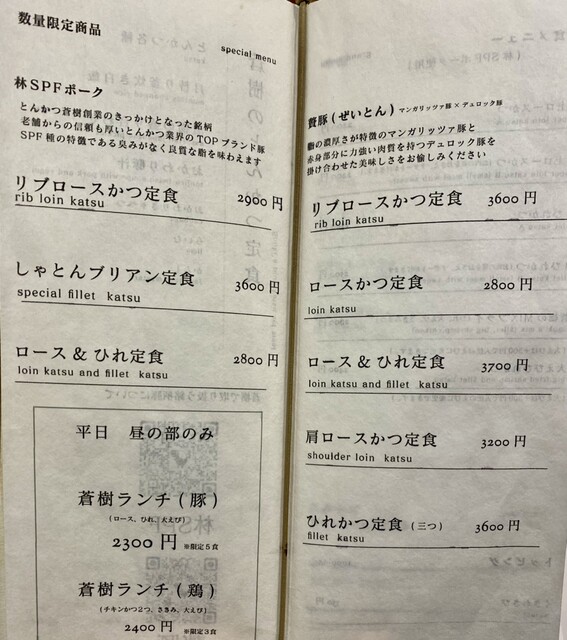 数量限定商品
special menu
林SPFポーク
とんかつ蒼樹創業のきっかけとなった銘柄
老舗からの信頼も厚いとんかつ業界のTOPブランド豚
SPF種の特徴である臭みがなく良質な脂を味わえます
リブロースかつ定食 2900円
rib loin katsu
しゃとんブリアン定食 3600円
special fillet katsu
ロース&ひれ定食 2800円
loin katsu and fillet katsu
平日 昼の部のみ
蒼樹ランチ(豚)
(ロース、ひれ、大えび)
2300円 ※限定5食
蒼樹ランチ(鶏)
(チキンかつ2つ、ささみ、大えび)
2400円 ※限定3食
贅豚(ぜいとん) マンガリッツァ豚×デュロック豚
脂の濃厚さが特徴のマンガリッツァ豚と
赤身部分に力強い肉質を持つデュロック豚を
掛け合わせた美味しさをお愉しみください
リブロースかつ定食 3600円
rib loin katsu
ロースかつ定食 2800円
loin katsu
ロース&ひれ定食 3700円
loin katsu and fillet katsu
肩ロースかつ定食 3200円
shoulder loin katsu
ひれかつ定食(三つ) 3600円
fillet katsu